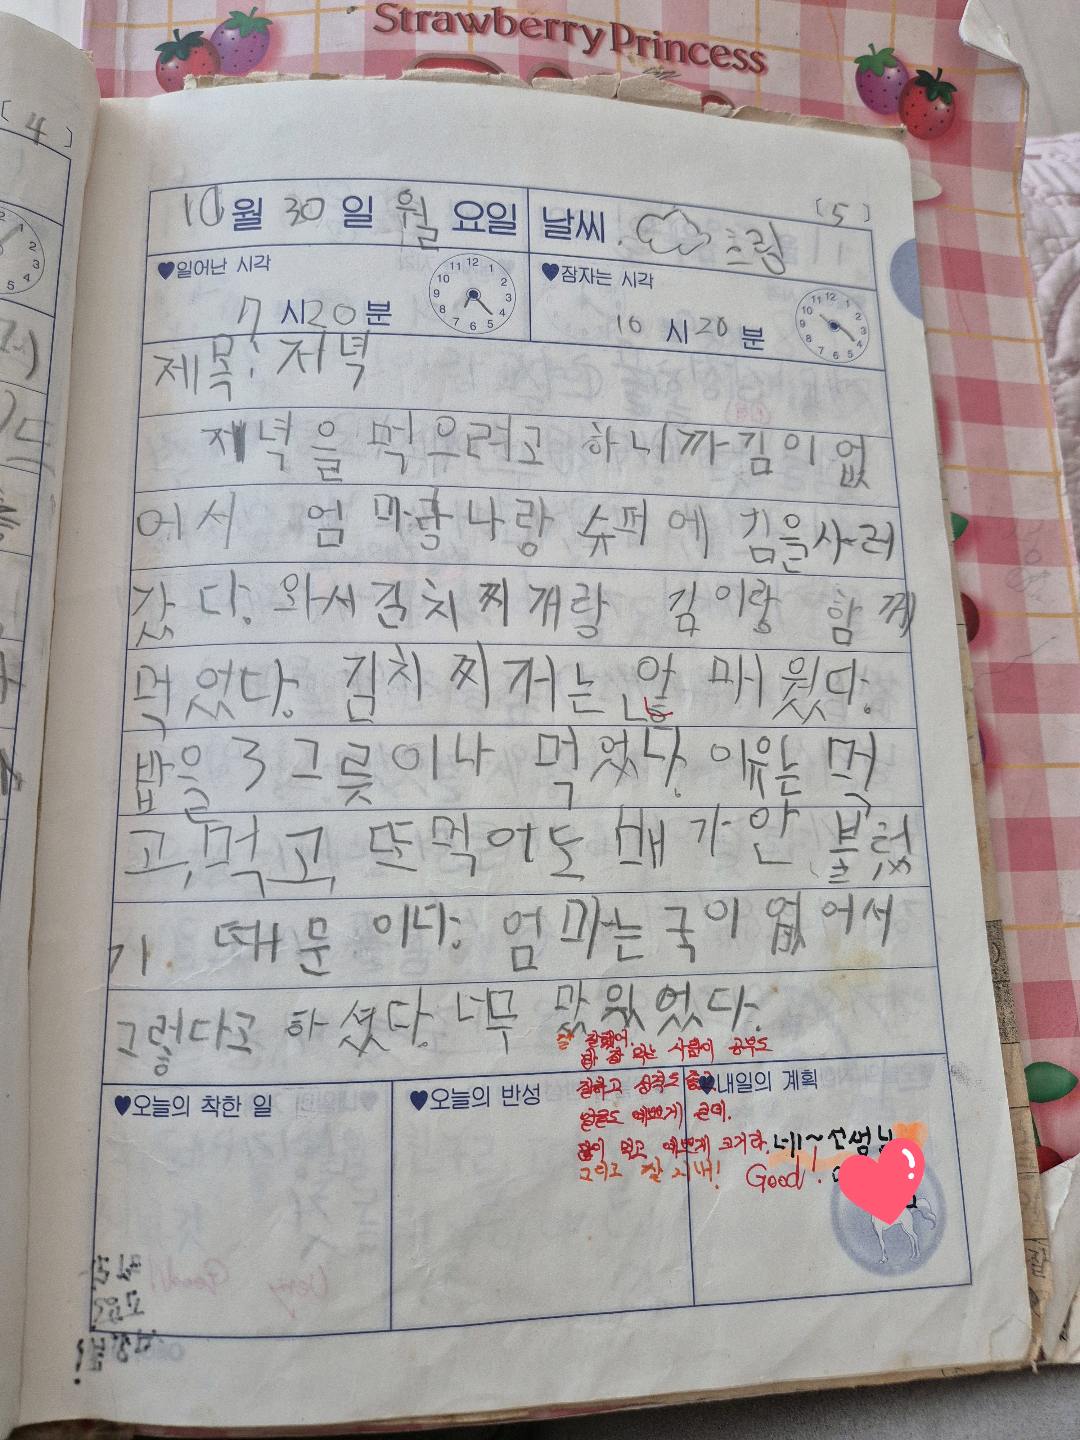 Strawberry Princess
[ 4 ]
[ 5 ]
10월 30일 월요일 날씨. 흐림
♥일어난 시각
7시20분
♥잠자는 시각
10시20분
제목: 저녁
저녁을 먹으려고 하니까김이 없
어서 엄마랑나랑 슈퍼에 김을사러
갔다. 와서김치찌개랑 김이랑 함께
먹었다. 김치찌개는 안 매웠다.
밥을 3그릇이나 먹었다. 이유는 먹
고,먹고, 또먹어도 배가안 불렀
기 때문이다. 엄마는국이 없어서
그렇다고 하셨다. 너무 맛있었다.
잘했어.
밥 잘 먹는 사람이 공부도
잘하고 성적도 좋고
얼굴도 예쁘게 큰데.
많이 먹고 예쁘게 크거라.
그리고 잘 지내!
네~선생님
Good!
♥오늘의 착한 일
♥오늘의 반성
♥내일의 계획